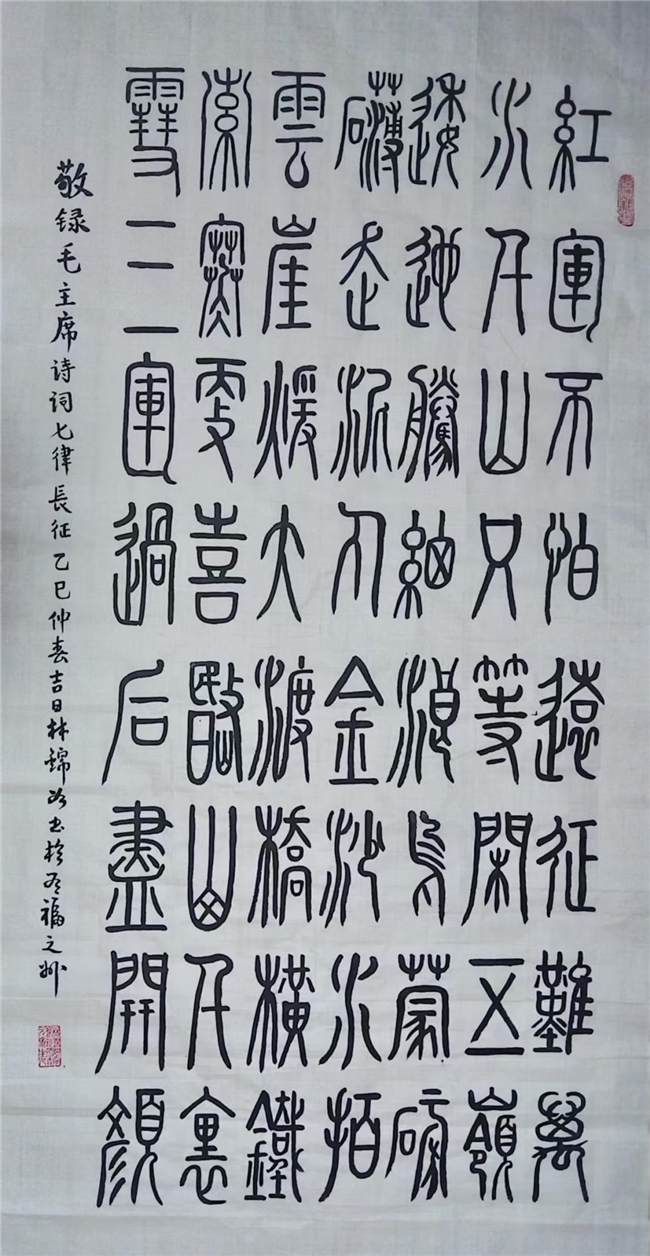 紅軍不怕遠征難萬
水千山只等閑五嶺
逶迤騰細浪烏蒙磅
礴走泥丸金沙水拍
雲崖暖大渡橋橫鐵
索寒更喜岷山千裏
雪三軍過后盡開顏
敬録毛主席诗词七律長征乙巳仲春吉日林錦书於有福之州